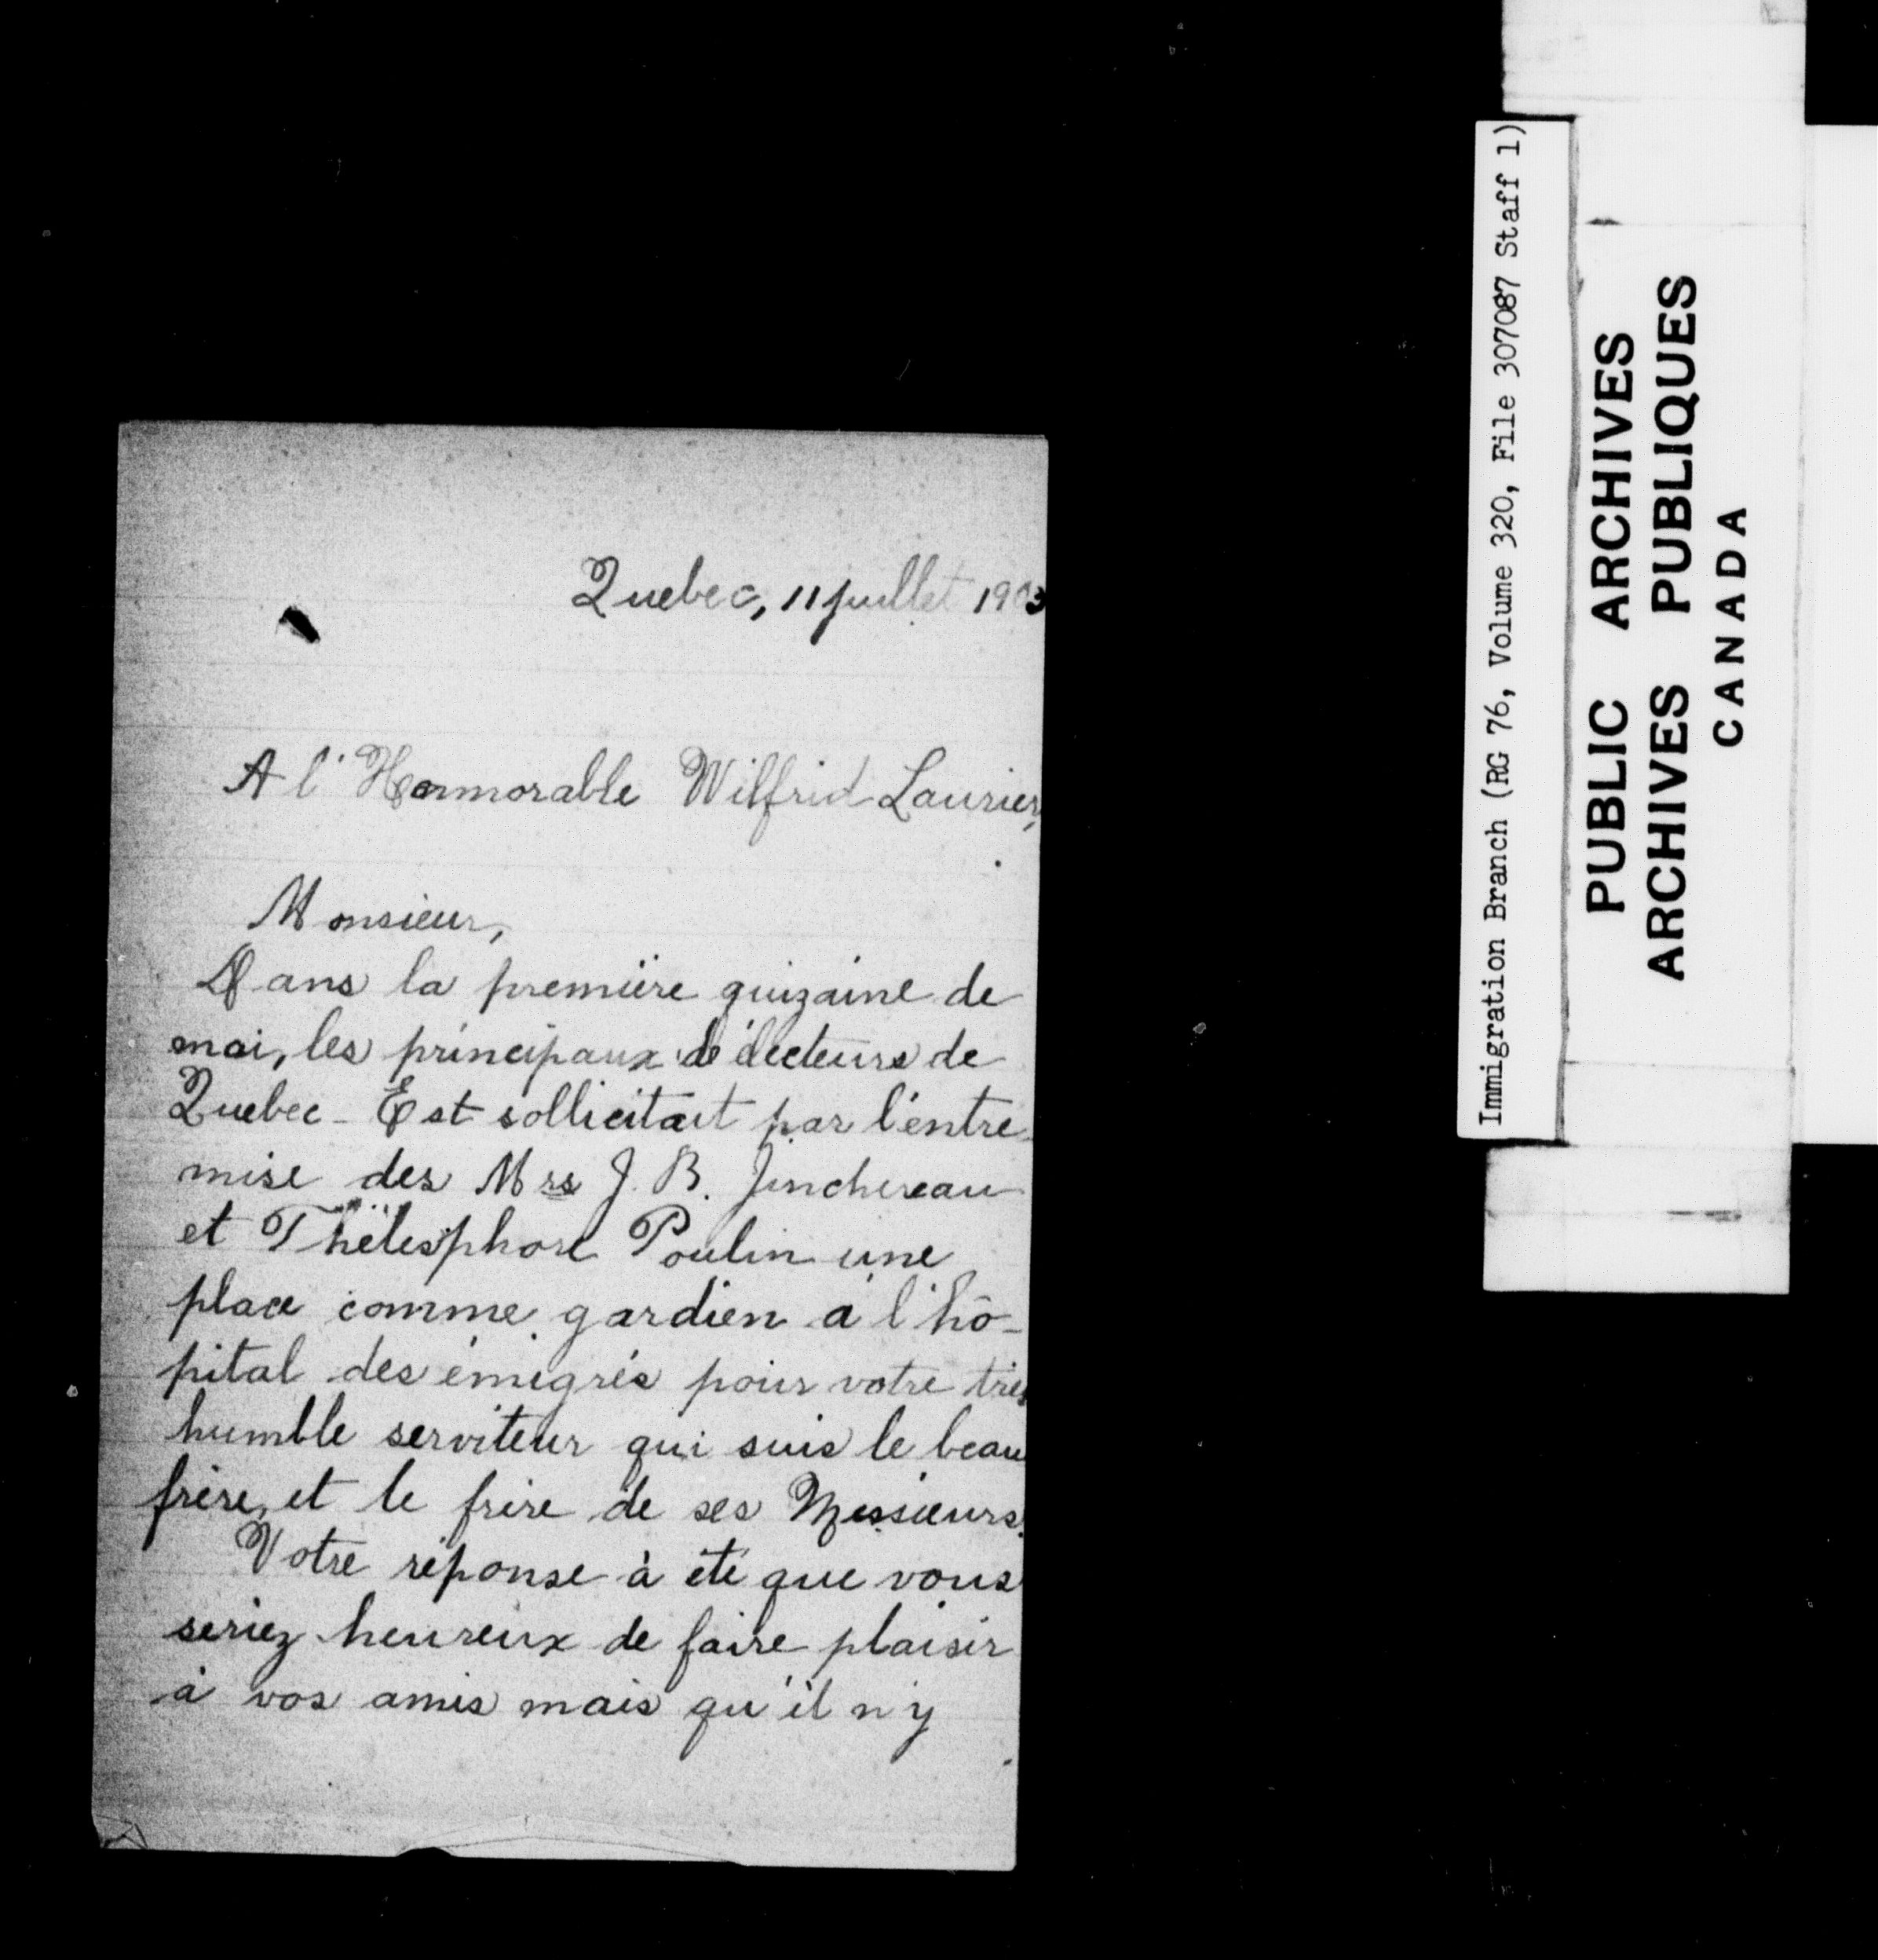 Quebec, 11 juillet 1903
A l'Honnorable Wilfrid Laurier,
Monsieur,
Dans la première quizaine de
mai, les principaux délecteurs de
Quebec-Est sollicitait par l'entre-
mise des Mrs J. B. Jinchereau
et Thélesphore Poulin une
place comme gardien à l'hô-
pital des émigrés pour votre très
humble serviteur qui suis le beau
frère, et le frère de ses Messieurs.
Votre réponse à été que vous
seriez heureux de faire plaisir
à vos amis mais qu'il n'y
Immigration Branch (RG 76, Volume 320, File 307087 Staff 1)
PUBLIC ARCHIVES
ARCHIVES PUBLIQUES
CANADA